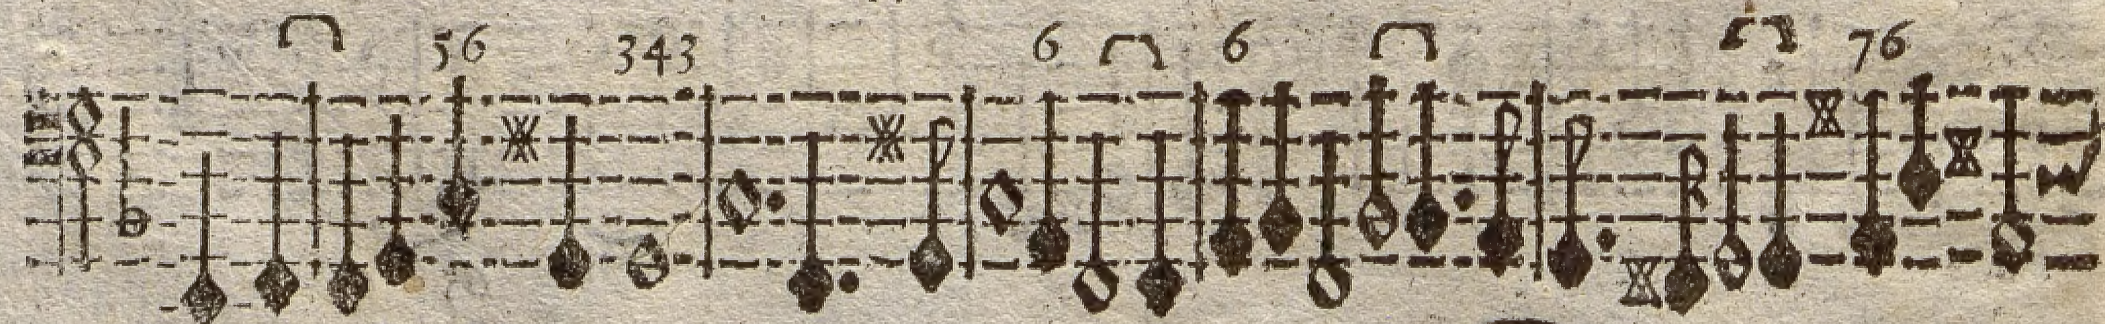 56 343 6 6 76